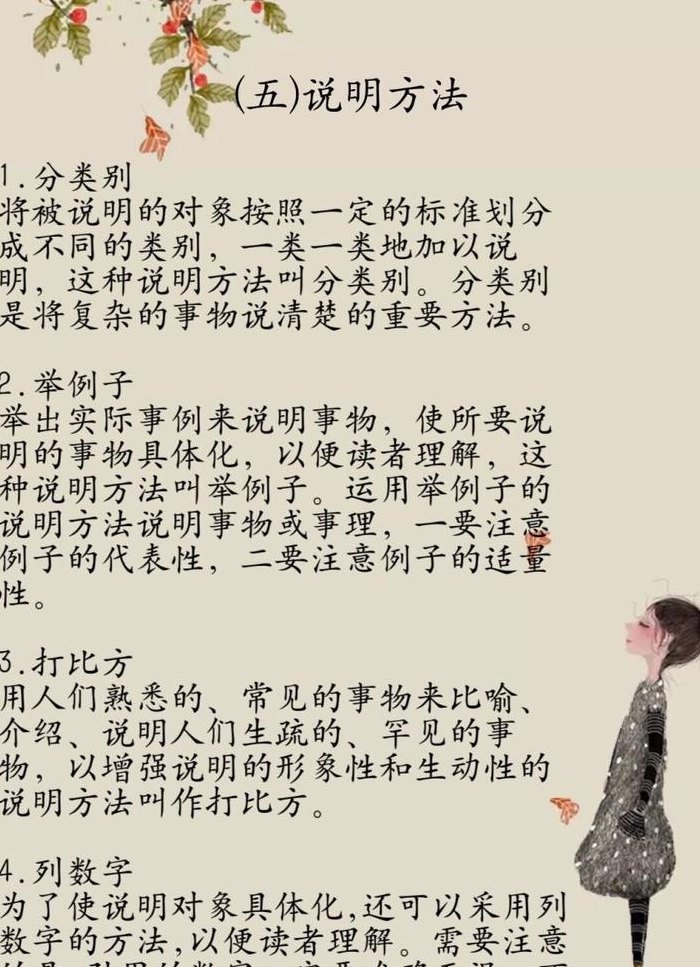 (五)说明方法
1.分类别
将被说明的对象按照一定的标准划分
成不同的类别，一类一类地加以说
明，这种说明方法叫分类别。分类别
是将复杂的事物说清楚的重要方法。
2.举例子
举出实际事例来说明事物，使所要说
明的事物具体化，以便读者理解，这
种说明方法叫举例子。运用举例子的
说明方法说明事物或事理，一要注意
例子的代表性，二要注意例子的适量
性。
3.打比方
用人们熟悉的、常见的事物来比喻、
介绍、说明人们生疏的、罕见的事
物，以增强说明的形象性和生动性的
说明方法叫作打比方。
4.列数字
为了使说明对象具体化,还可以采用列
数字的方法,以便读者理解。需要注意